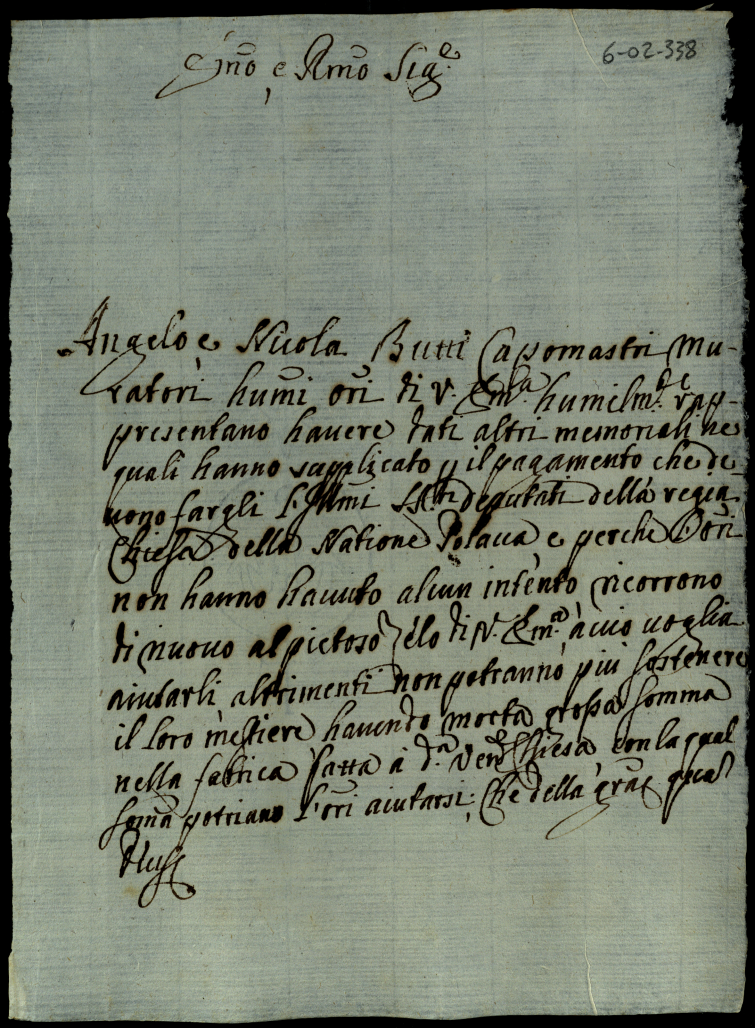 6-02-338
Em̃o e Rm̃o Sig.e
Angelo e Nicola Butti Capomastri Mu-
ratori humi Ori di V. Em.za humilm.te rap-
presentano havere dati altri memoriali ne
quali hanno supplicato p il pagamento che de
uono fargli l'Illmi SS.ri deputati della regia
Chiesa della Natione Polaca, e perche l'Ori
non hanno hauuto alcun intento ricorrono
di nuovo al pietoso Zelo di V. Em.a à cio voglia
aiutarli, altrimenti non potranno piu sostenere
il loro mestiere hauendo molta grossa somma
nella fabrica fatta à d.a Ven. Chiesa, con la qual
som̃a potriano l'Ori aiutarsi; Che della gra. qua
Deus